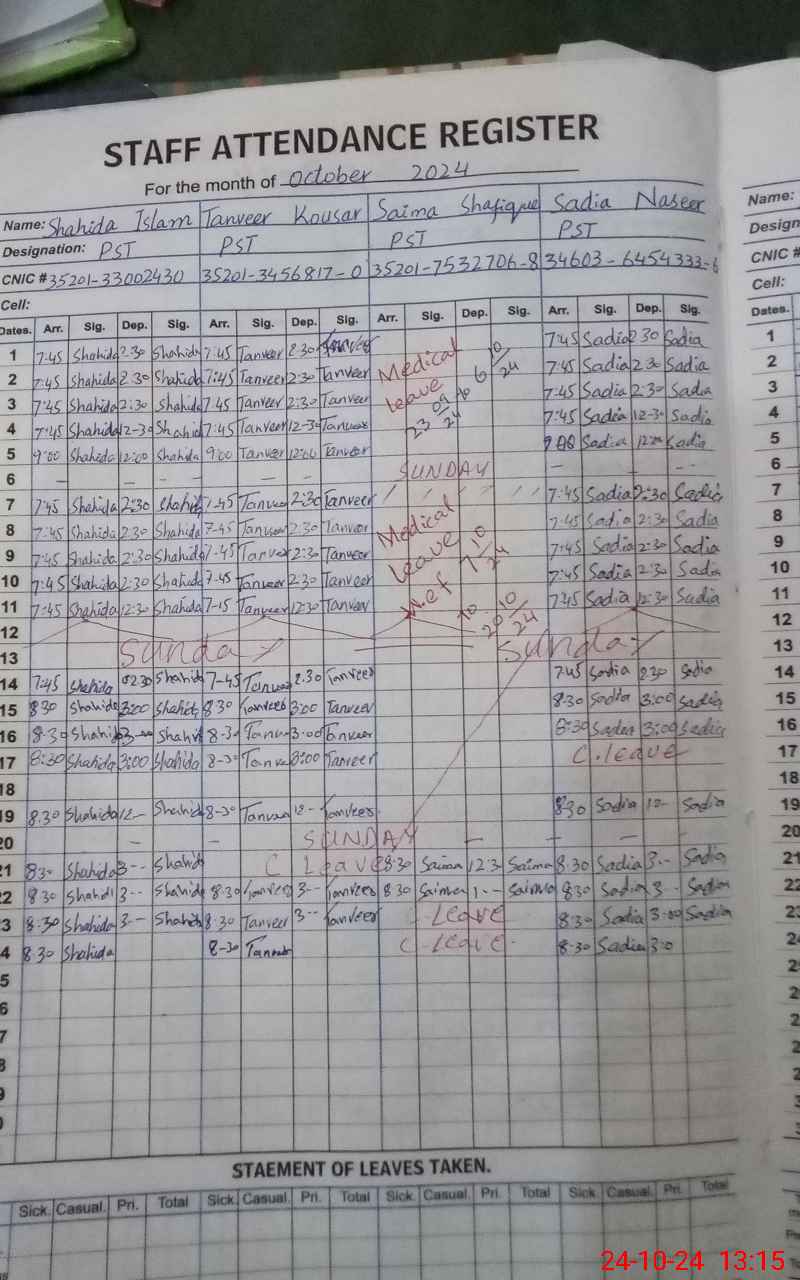 STAFF ATTENDANCE REGISTER
For the month of October 2024
Name: Shahida Islam Tanveer Kousar Saima Shafique Sadia Naseer Name:
Designation: PST PST PST PST Design
CNIC # 35201-33002430 35201-3456817-0 35201-7532706-8 34603-6454333-6 CNIC #
Cell: Cell:
Dates. Arr. Sig. Dep. Sig. Arr. Sig. Dep. Sig. Arr. Sig. Dep. Sig. Arr. Sig. Dep. Sig. Dates.
1 7:45 Shahida 2:30 Shahida 7:45 Tanveer 2:30 Tanveer Medical 7:45 Sadia 2:30 Sadia 1
2 7:45 Shahida 2:30 Shahida 7:45 Tanveer 2:30 Tanveer leave 7:45 Sadia 2:30 Sadia 2
3 7:45 Shahida 2:30 Shahida 7:45 Tanveer 2:30 Tanveer 23 09/24 to 6 10/24 7:45 Sadia 2:30 Sadia 3
4 7:45 Shahida 12-30 Shahid 7:45 Tanveer 12-30 Tanveer 7:45 Sadia 12-30 Sadia 4
5 9:00 Shahida 12:00 Shahida 9:00 Tanveer 12:00 Tanveer Sadia Sadia 5
6 — — — — — SUNDAY — — — 6
7 7:45 Shahida 2:30 Shahida 7-45 Tanveer 2:30 Tanveer 7:45 Sadia 2:30 Sadia 7
8 7:45 Shahida 2:30 Shahida 7-45 Tanveer 2:30 Tanveer Medical 7:45 Sadia 2:30 Sadia 8
9 7:45 Shahida 2:30 Shahida 7-45 Tanveer 2:30 Tanveer leave 7 10/24 7:45 Sadia 2:30 Sadia 9
10 7:45 Shahida 2:30 Shahida 7-45 Tanveer 2:30 Tanveer 7:45 Sadia 2:30 Sadia 10
11 7:45 Shahida 12:30 Shahida 7-45 Tanveer 12:30 Tanveer to 20 10/24 7:45 Sadia 12:30 Sadia 11
12 12
13 Sunday Sunday 13
14 7:45 Shahida 02:30 Shahida 7-45 Tanveer 2:30 Tanveer 7:45 Sadia 2:30 Sadia 14
15 8:30 Shahida 3:00 Shahida 8:30 Tanveer 3:00 Tanveer 8:30 Sadia 3:00 Sadia 15
16 8:30 Shahida 3-- Shahida 8-30 Tanveer 3:00 Tanveer 8:30 Sadia 3:00 Sadia 16
17 8:30 Shahida 3:00 Shahida 8-30 Tanveer 3:00 Tanveer C.leave 17
18 18
19 8:30 Shahida 12-- Shahida 8-30 Tanveer 12-- Tanveer 8:30 Sadia 12-- Sadia 19
20 — — SUNDAY — — — 20
21 8:30 Shahida 3-- Shahida C Leave 8:30 Saima 12:3 Saima 8:30 Sadia 3-- Sadia 21
22 8:30 Shahida 3-- Shahida 8:30 Tanveer 3-- Tanveer 8:30 Saima 1-- Saima 8:30 Sadia 3-- Sadia 22
3 8:30 Shahida 3-- Shahida 8:30 Tanveer 3-- Tanveer C-Leave 8:30 Sadia 3:00 Sadia 23
4 8:30 Shahida 8-30 Tanveer C-Leave 8:30 Sadia 3:0 24
5
6
7
8
9
0
STAEMENT OF LEAVES TAKEN.
Sick. Casual. Pri. Total Sick. Casual. Pri. Total Sick. Casual. Pri. Total Sick. Casual. Pri. Total
24-10-24 13:15